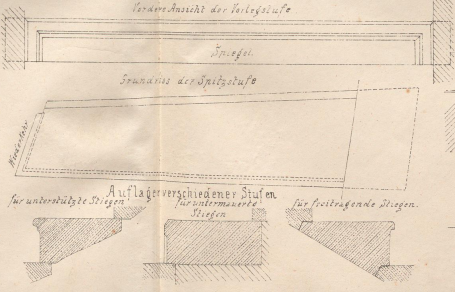 Vordere Ansicht der Vorlegstufe
Spiegel.
Grundriss der Spitzstufe
Auflager verschiedener Stufen
für unterstützte Stiegen
für untermauerte
Stiegen
für freitragende Stiegen.